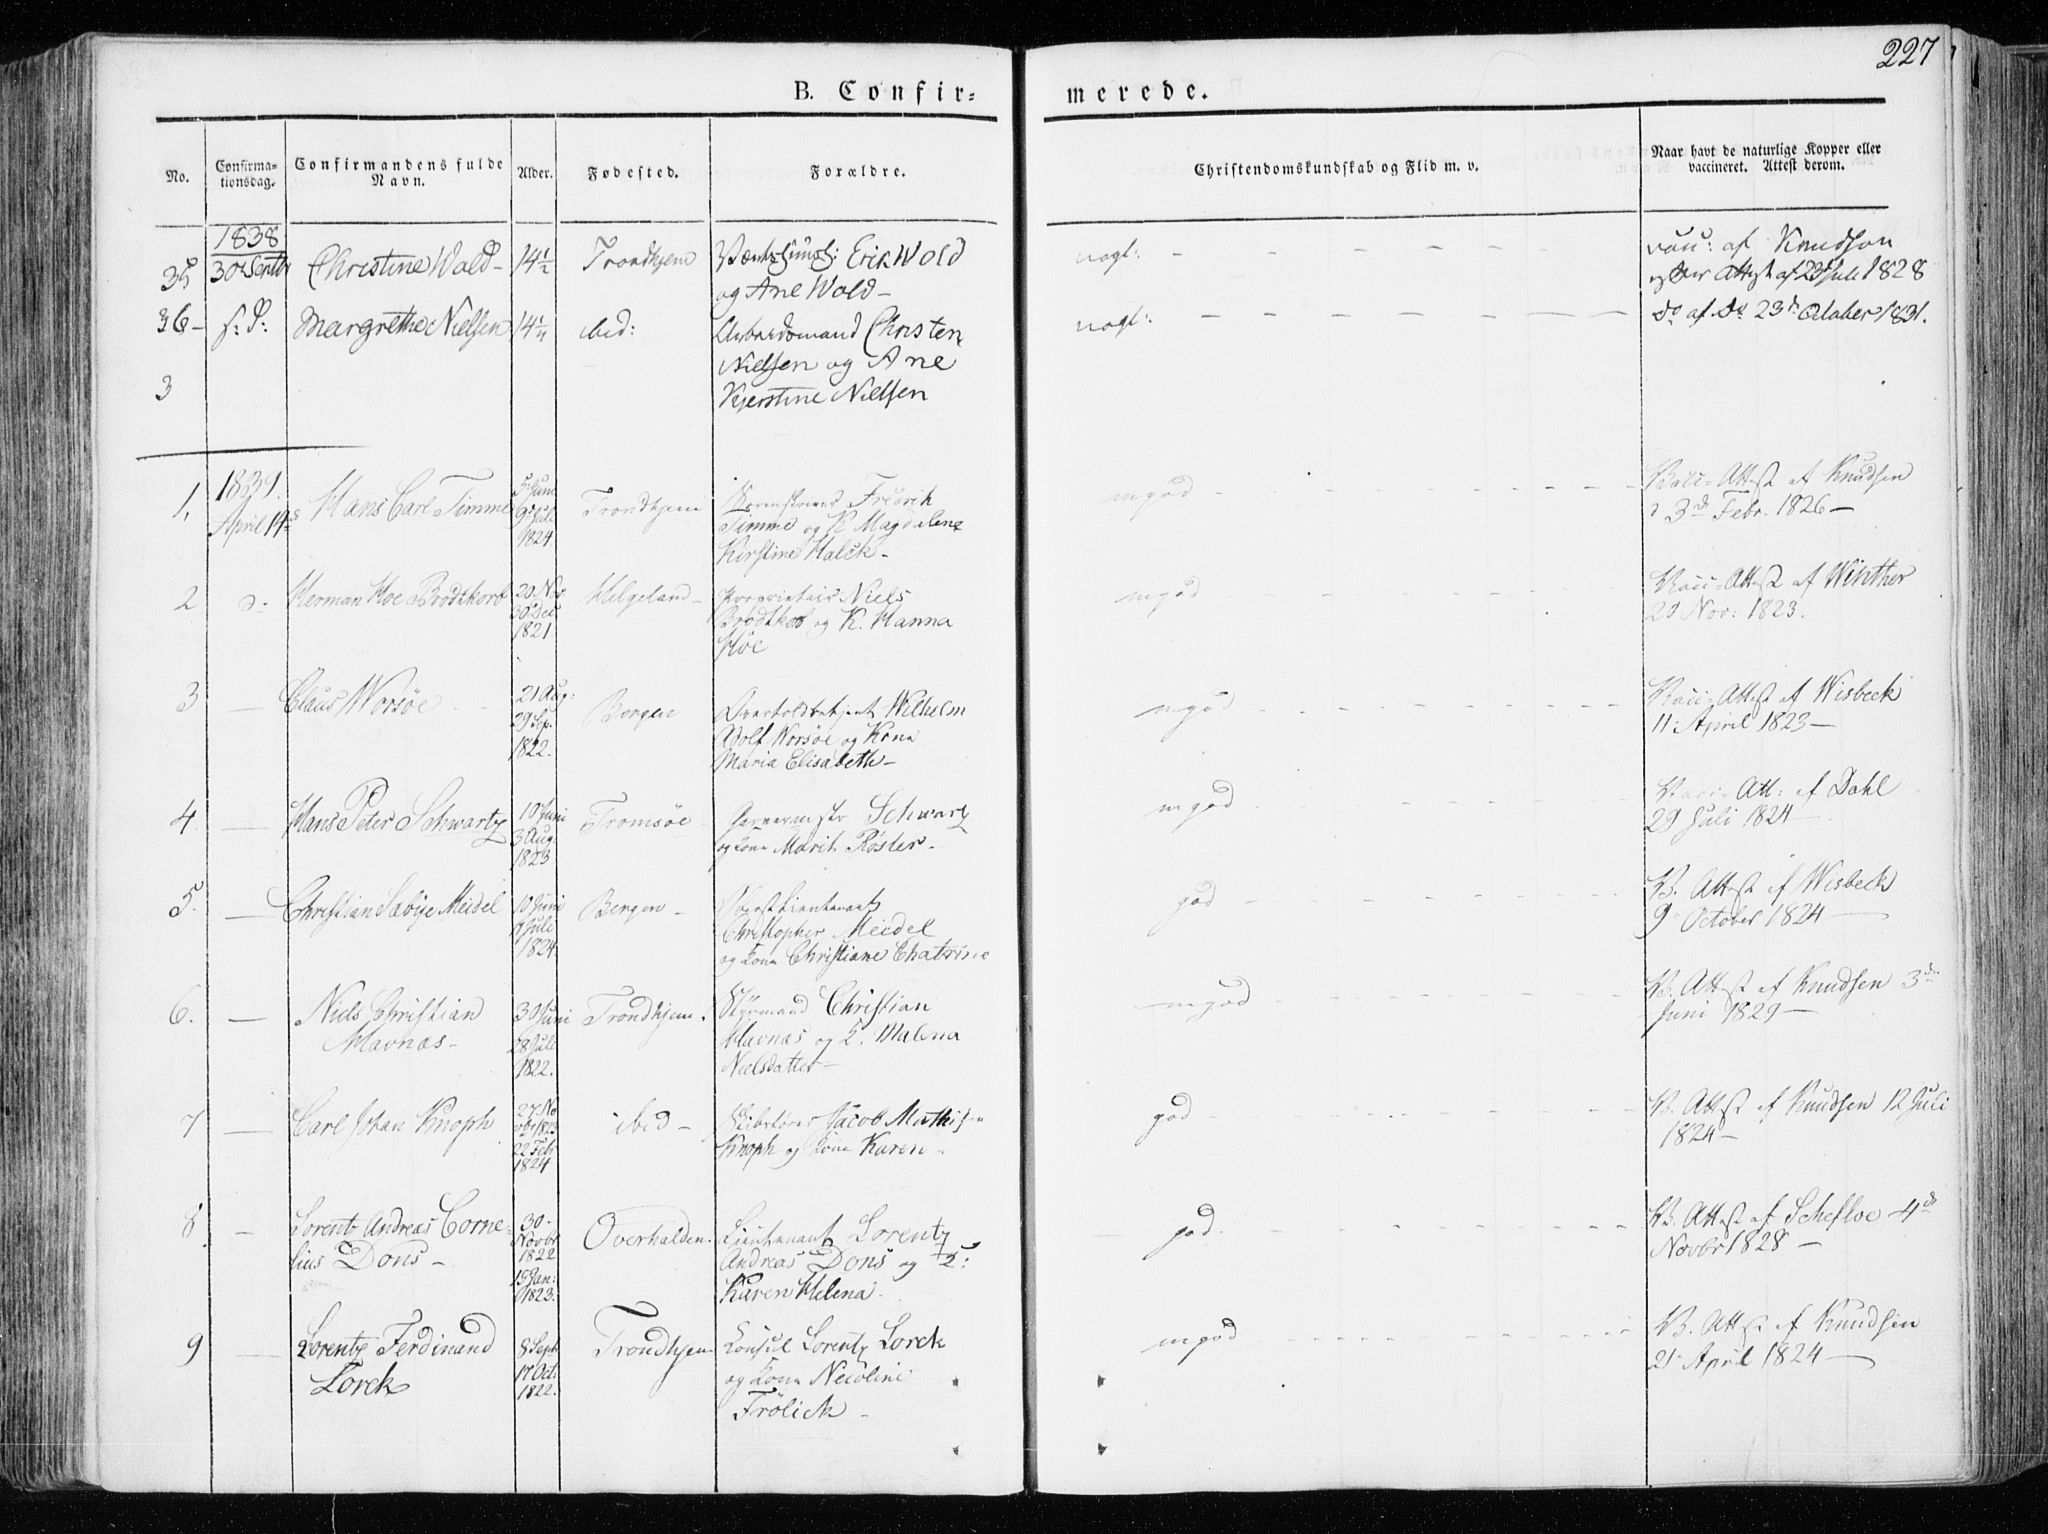 227
B. Confir=
merede.
No.
Confirma-
tionsdag.
Confirmandens fulde
Navn.
Alder.
Fødested.
Forældre.
Christendomskundskab og Flid m. v.
Naar havt de naturlige Kopper eller
vaccineret. Attest derom.
1838
35 30 Septbr Christine Wold - 14 1/2 Trondhjem Erik Wold
og Ane Wold -
nogl: vacc: af Knudson
Attest af 23 Juli 1828
36 - s: D: Margrethe Nielsen 14 1/4 ibid: Arbeidsmand Christen
Nielsen og Ane
Kjerstine Nielsen
nogl: do af do 23 October 1831.
3
1839.
1, April 14de Hans Carl Timme 5 Juni
9 Juli
1824 Trondhjem Fredrik
Timme og K Magdalene
Kirstine Halck -
mgod Vacc. Attest af Knudsen
3 Febr. 1826 -
2 Herman Hoe Brodtkorb 20 Nov
30 Dec
1821 Helgeland - Proprietair Niels
Brodtkorb og K. Hanna
Höe
mgod Vacc. Attest af Winther
20 Nov: 1823.
3 - Claus Worsöe 21 Aug:
29 Sep.
1822. Bergen Wilhelm
Adolf Worsöe og Kona
Maria Elisabeth -
mgod Vacc. Attest af Wisbeck
11 April 1823 -
4. - Hans Peter Schwartz 10 Juni
3 Aug.
1823 Tromsöe - Garvermstr Schwartz
og Kona Marit Röster.
mgod Vacc. Att: af Dahl
29 Juli 1824
5. - Christian Meidel 10 Juni
Juli
1824 Bergen - Oberstlieutenant
Christopher Meidel
og Kona Christiane Chatrine
god V. Attest af Wisbeck
9 October 1824 -
6. - Niels Christian
Havnæs - 30 Juni
28 Juli
1822. Trondhjem. Styrmand Christian
Havnæs og K. Malena
Nielsdatter -
mgod V. Attest af Knudsen 3de
Juni 1829 -
7 - Carl Johan Knoph 27 No
vbr 1823
22 Febr
1824 ibid - Jacob Mathisen
Knoph og Kone Karen.
god V. Attest af Knudsen 12 Juli
1824 -
8 - Lorentz Andreas Corne-
lius Dons - 30
Novbr
1822
15 Jan:
1823. Overhalden. Lieutenant Lorentz
Andreas Dons og K:
Karen Helena.
god. V. Attest af Schefloe 4de
Novbr 1828 -
9 - Lorentz Ferdinand
Lorck 8 Sept
17 Oct.
1822. Trondhjem Konsul Lorentz Lorck
og Kona Nicoline
Frölick -
mgod V. Attest af Knudsen
21 April 1824 -